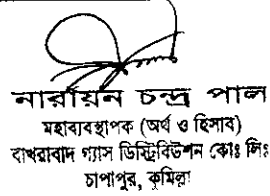 নারায়ন চন্দ্র পাল
মহাব্যবস্থাপক (অর্থ ও হিসাব)
বাখরাবাদ গ্যাস ডিস্ট্রিবিউশন কোঃ লিঃ
চাপাপুর, কুমিল্লা